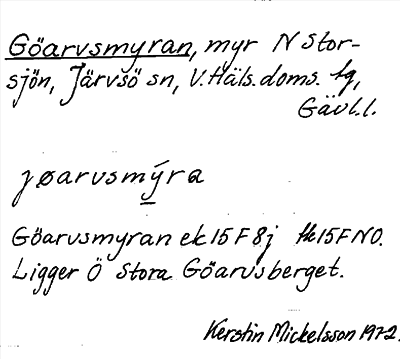 Göarvsmyran, myr N Stor-
sjön, Järvsö sn, V. Häls. doms. tg,
Gävl.l.
jøarvsmýra
Göarvsmyran ek 15 F 8j tk 15F NO.
Ligger Ö Stora Göarvsberget.
Kerstin Mickelsson 1972.